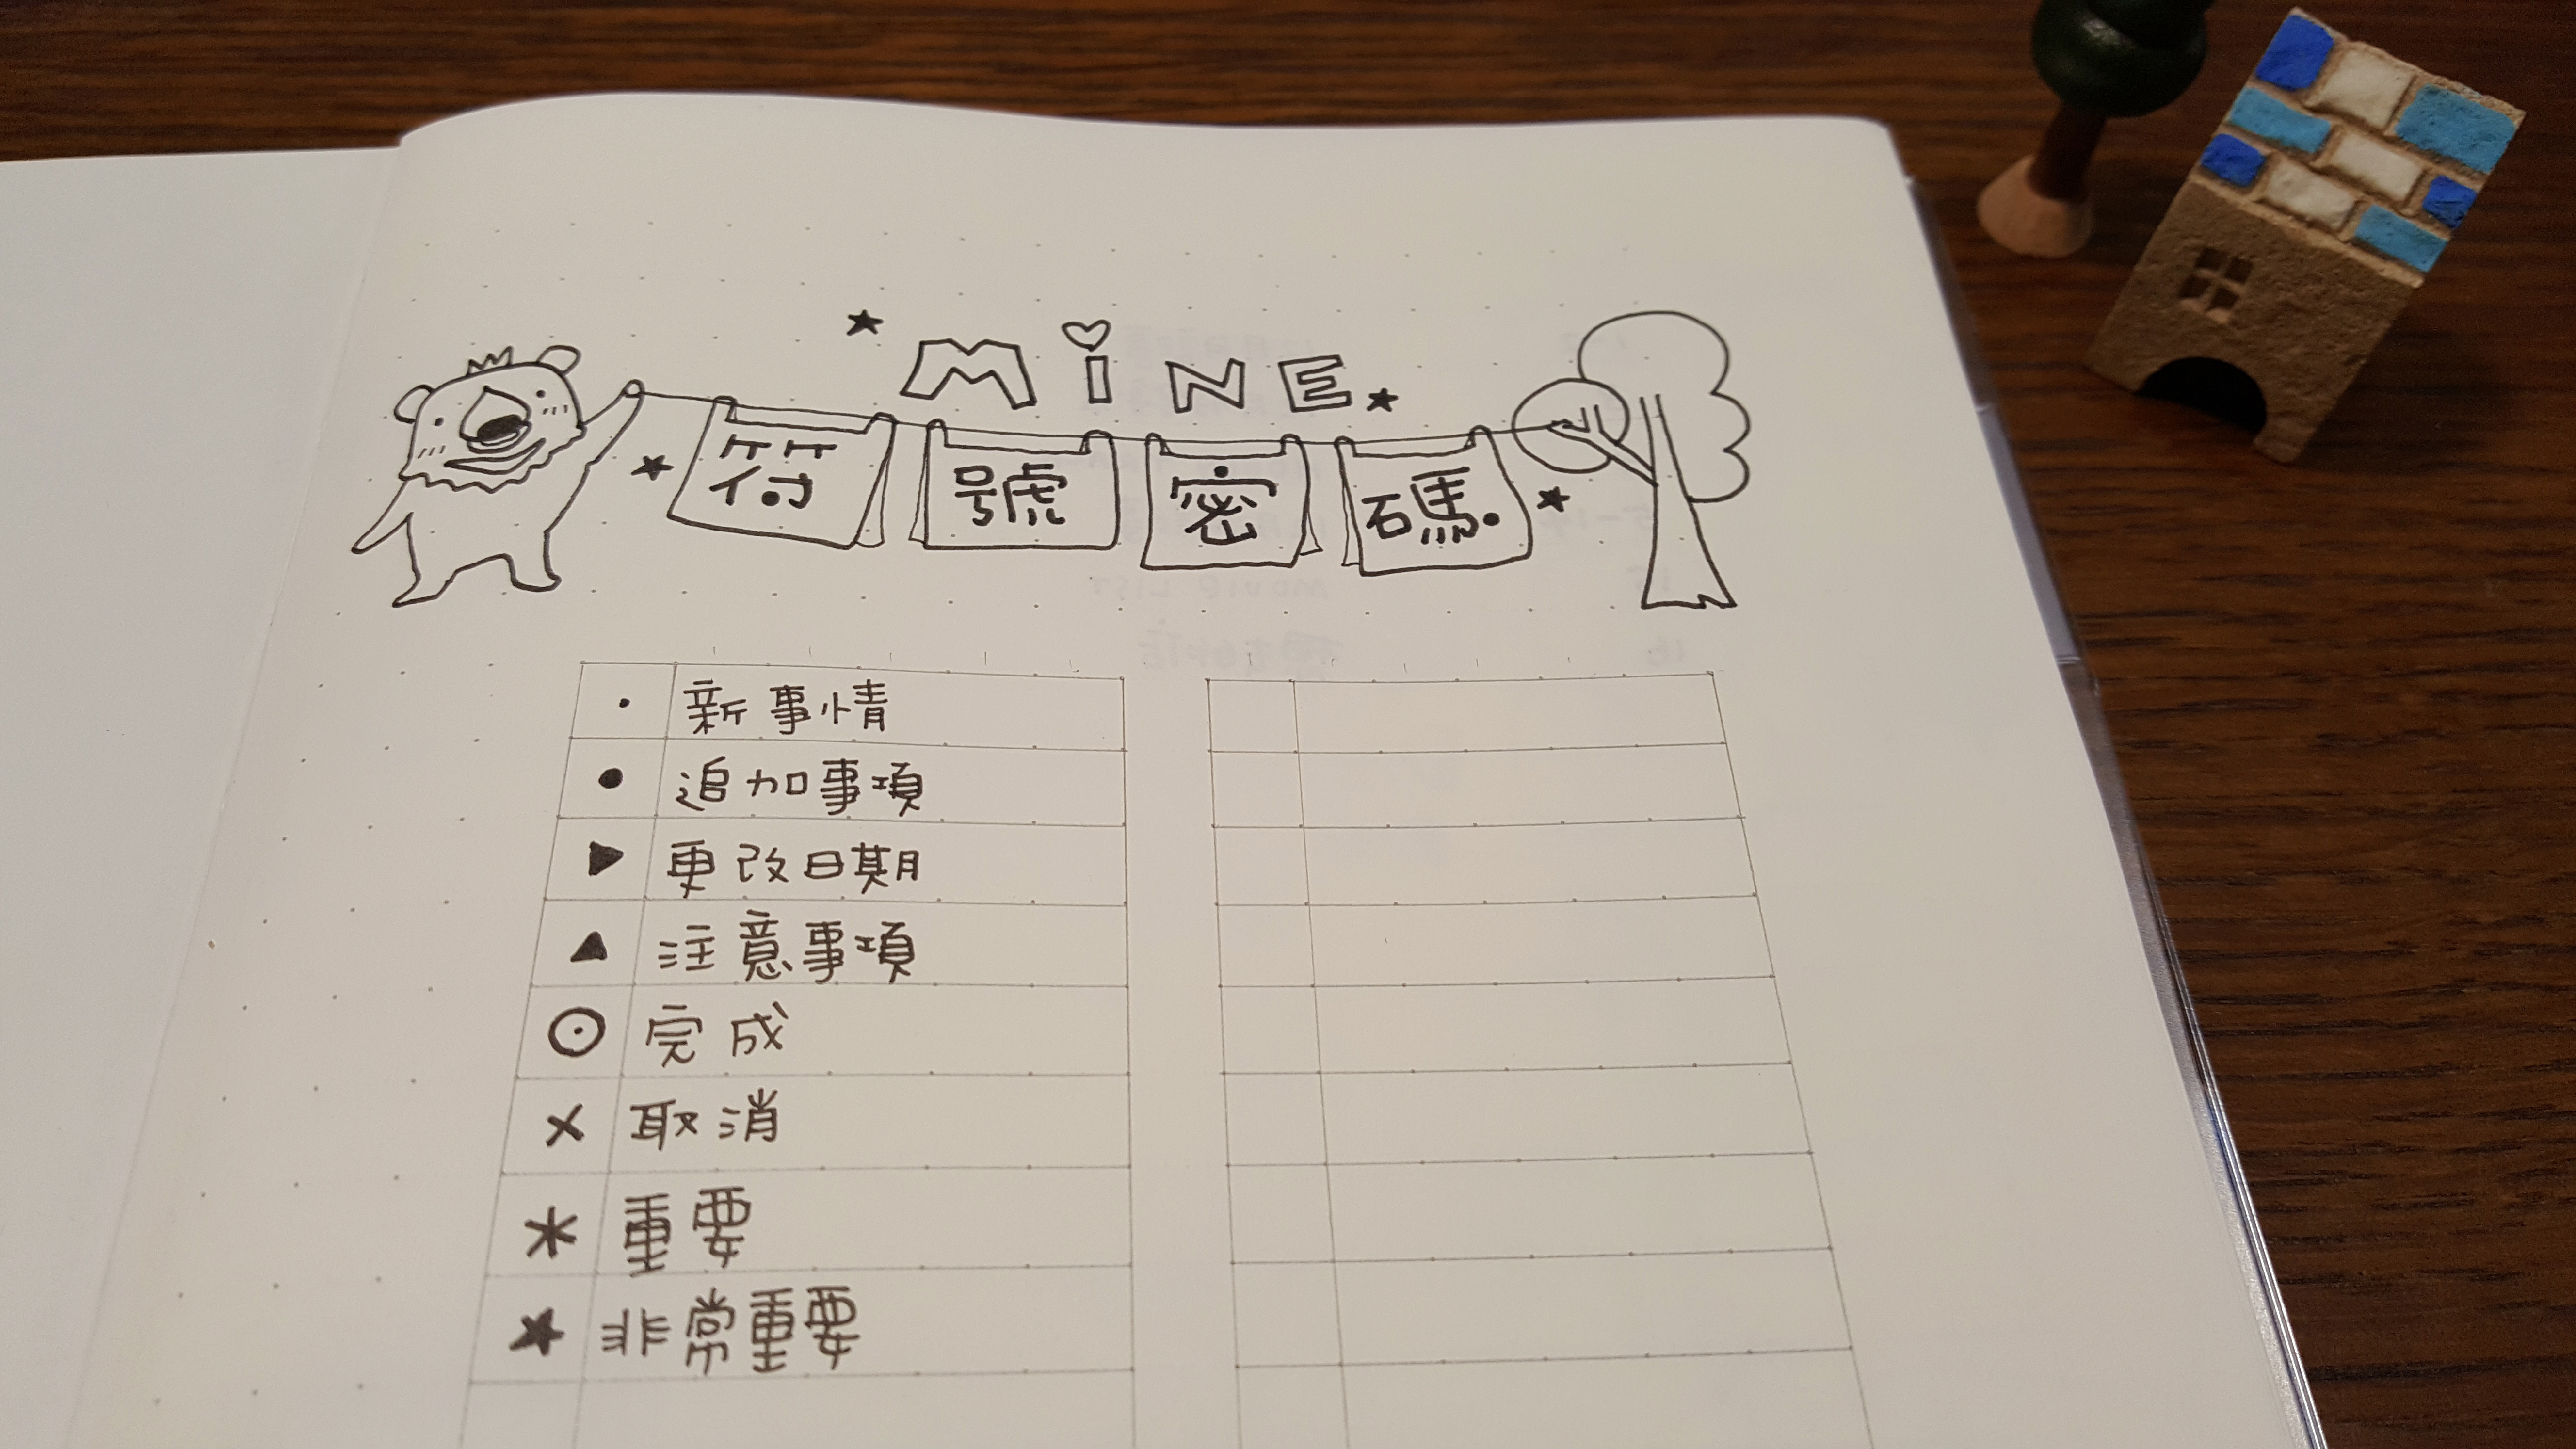 MiNE
符號密碼
• 新事情
● 追加事項
▶ 更改日期
▲ 注意事項
⊙ 完成
× 取消
* 重要
★ 非常重要